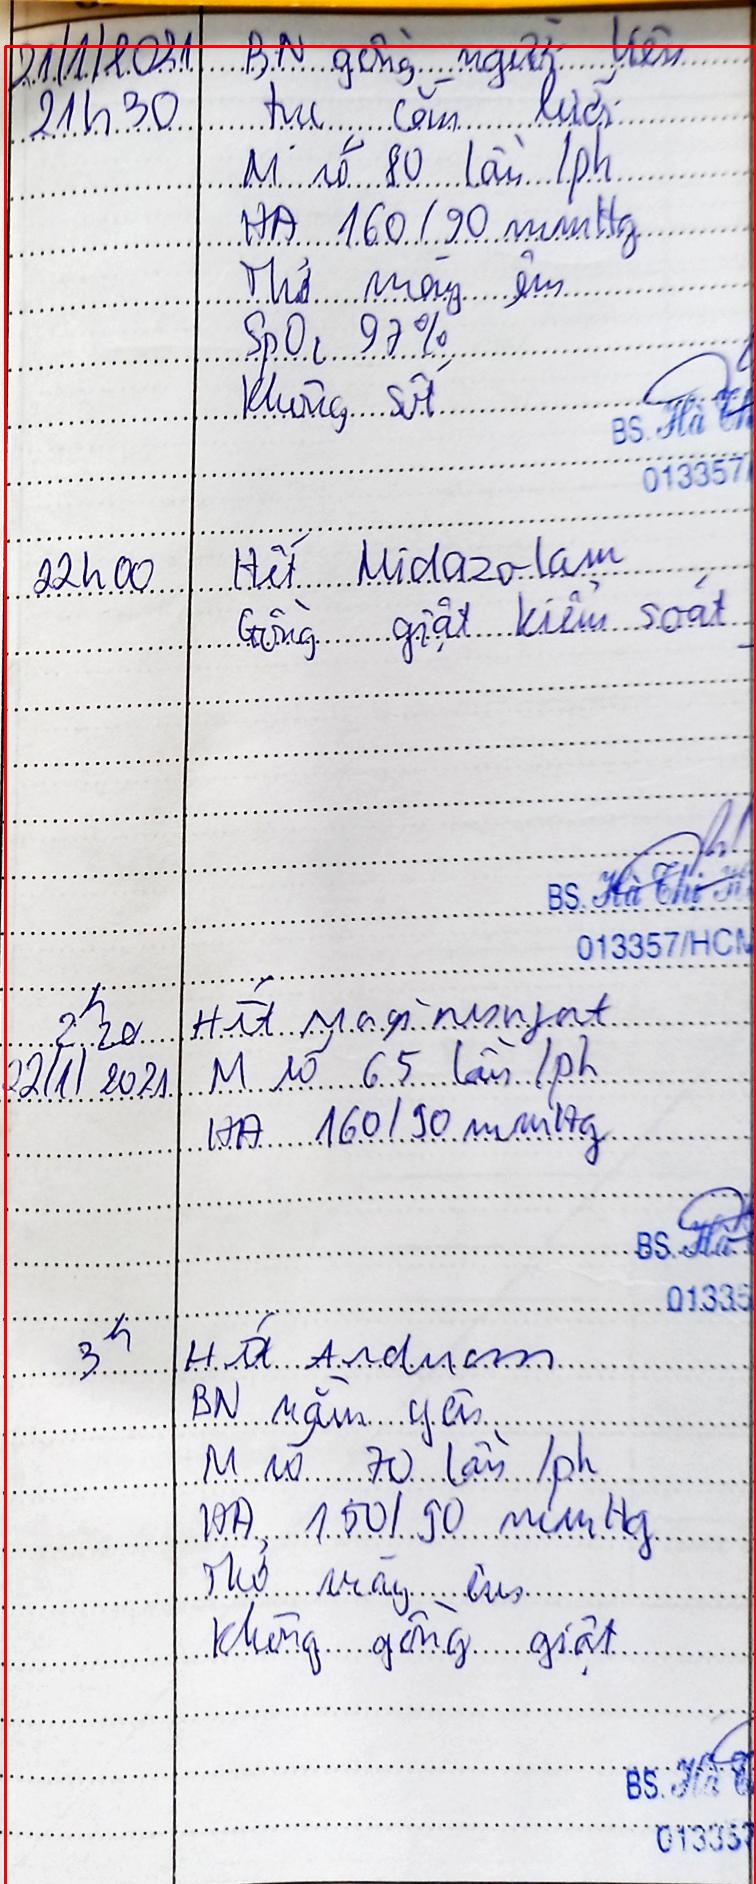 21/1/2021 BN gồng người liên
21h30 tục cắn lưỡi
M rõ 80 lần/ph
HA 160/90 mmHg
Thở máy êm
SpO2 97%
Không sốt
BS. Hà Th
013357/
22h00 Hết Midazolam
Gồng giật kiểm soát
BS. Hà Thị
013357/HCM
2h20 Hết
22/1/2021 M rõ 65 lần/ph
HA 160/90 mmHg
BS. Hà
01335
3h Hết Arduan
BN nằm yên
M rõ 70 lần/ph
HA 150/90 mmHg
Thở máy êm
Không gồng giật
BS. Hà
013357